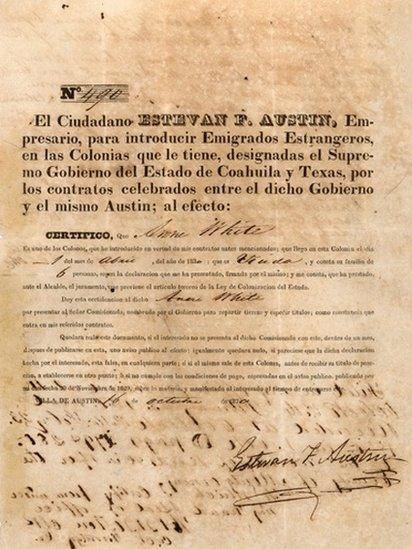 No. 490
El Ciudadano ESTEVAN F. AUSTIN, Em-
presario, para introducir Emigrados Estrangeros,
en las Colonias que le tiene, designadas el Supre-
mo Gobierno del Estado de Coahuila y Texas, por
los contratos celebrados entre el dicho Gobierno
y el mismo Austin; al efecto:
CERTIFICO, Que Anne White
Es uno de los Colonos, que he introducido en virtud de mis contratos antes mencionados; que llegó en esta Colonia el dia
1 del mes de abril del año de 1830 que es viuda y consta su familia de
6 personas, segun la declaracion que me ha presentado, firmada por el mismo; y me consta, que ha prestado,
ante el Alcalde, el juramento, que previene el articulo tercero de la Ley de Colonizacion del Estado.
Doy esta certificacion al dicho Anne White
por presentar al Señor Comisionado, nombrado por el Gobierno para repartir tierras y espedir Titulos; como constancia que
entra en mis referidos contratos.
Quedara nulo este documento, si el interesado no se presenta al dicho Comisionado con este, dentro de un mes,
despues de publicarse en esta, uno aviso publico al efecto: igualmente quedara nulo, si pareciese que la dicha declaracion
hecha por el interesado, esta falsa, en cualquiera parte; ó si el mismo sale de esta Colonia, antes de recibir su titulo,
a establecerse en otro punto: ó si no cumple con las condiciones de pago, espresadas en el aviso publico, publicado por
mi fecha 20 de Noviembre de 1829, sobre la materia, y manifestado al interesado al tiempo de
VILLA DE AUSTIN, 16 de octubre 1830
Estevan F. Austin